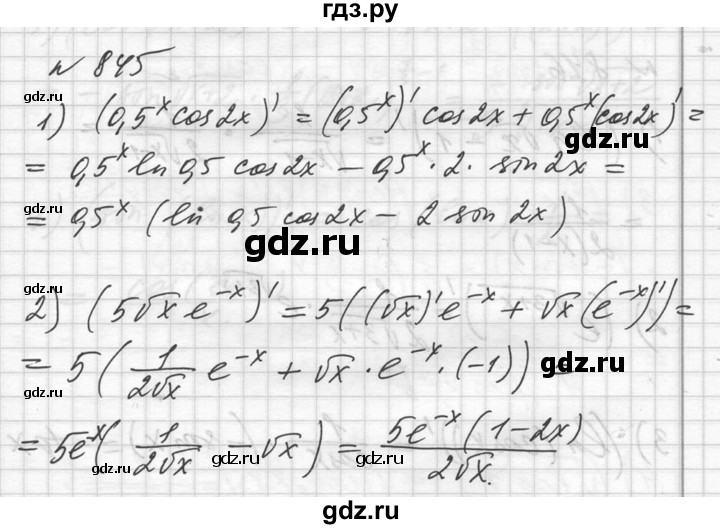 гдз.ру
№ 845
gdz.ru
1) (0,5^x cos2x)' = (0,5^x)' cos2x + 0,5^x (cos2x)' =
gdz.ru
= 0,5^x ln 0,5 cos2x − 0,5^x · 2 · sin2x =
gdz.ru
= 0,5^x (ln 0,5 cos2x − 2 sin 2x)
gdz.ru
gdz.ru
2) (5√x e^{−x})' = 5((√x)' e^{−x} + √x (e^{−x})') =
gdz.ru
= 5(1/(2√x) e^{−x} + √x · e^{−x} · (−1)) =
gdz.ru
gdz.ru
= 5e^{−x}(1/(2√x) − √x) = 5e^{−x}(1−2x)/(2√x).
gdz.ru
gdz.ru
gdz.ru